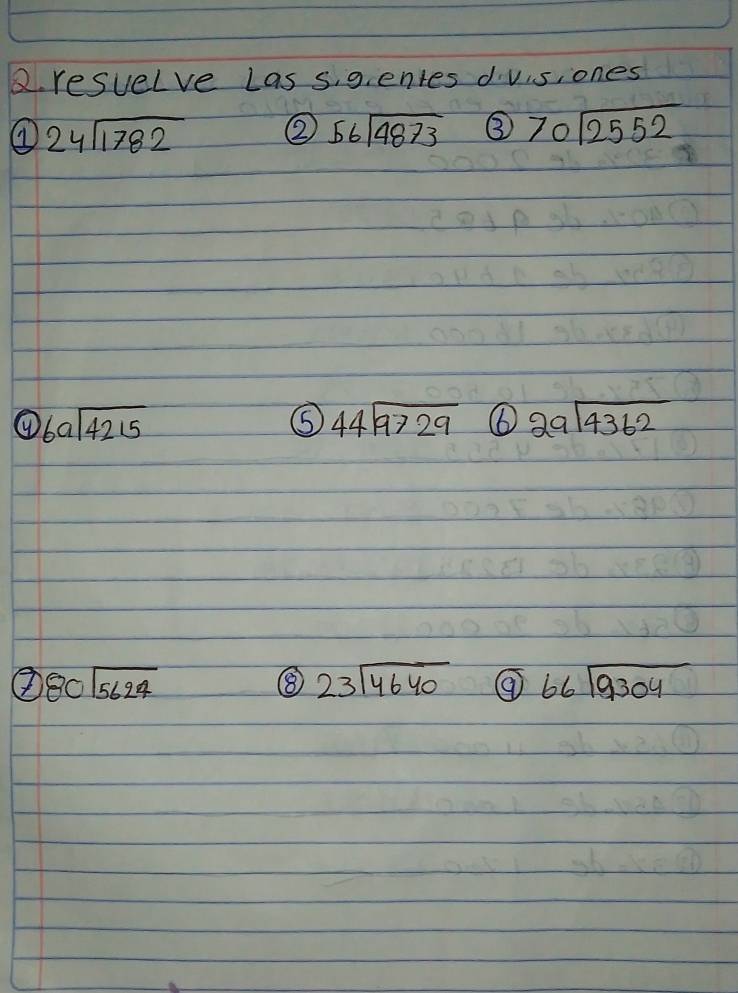 2. resuelve Las sigientes divisiones
① 24 1782 ② 56 4873 ③ 70 2552
④ 69 4215 ⑤ 44 9729 ⑥ 29 4362
⑦ 80 5624 ⑧ 23 4640 ⑨ 66 9304